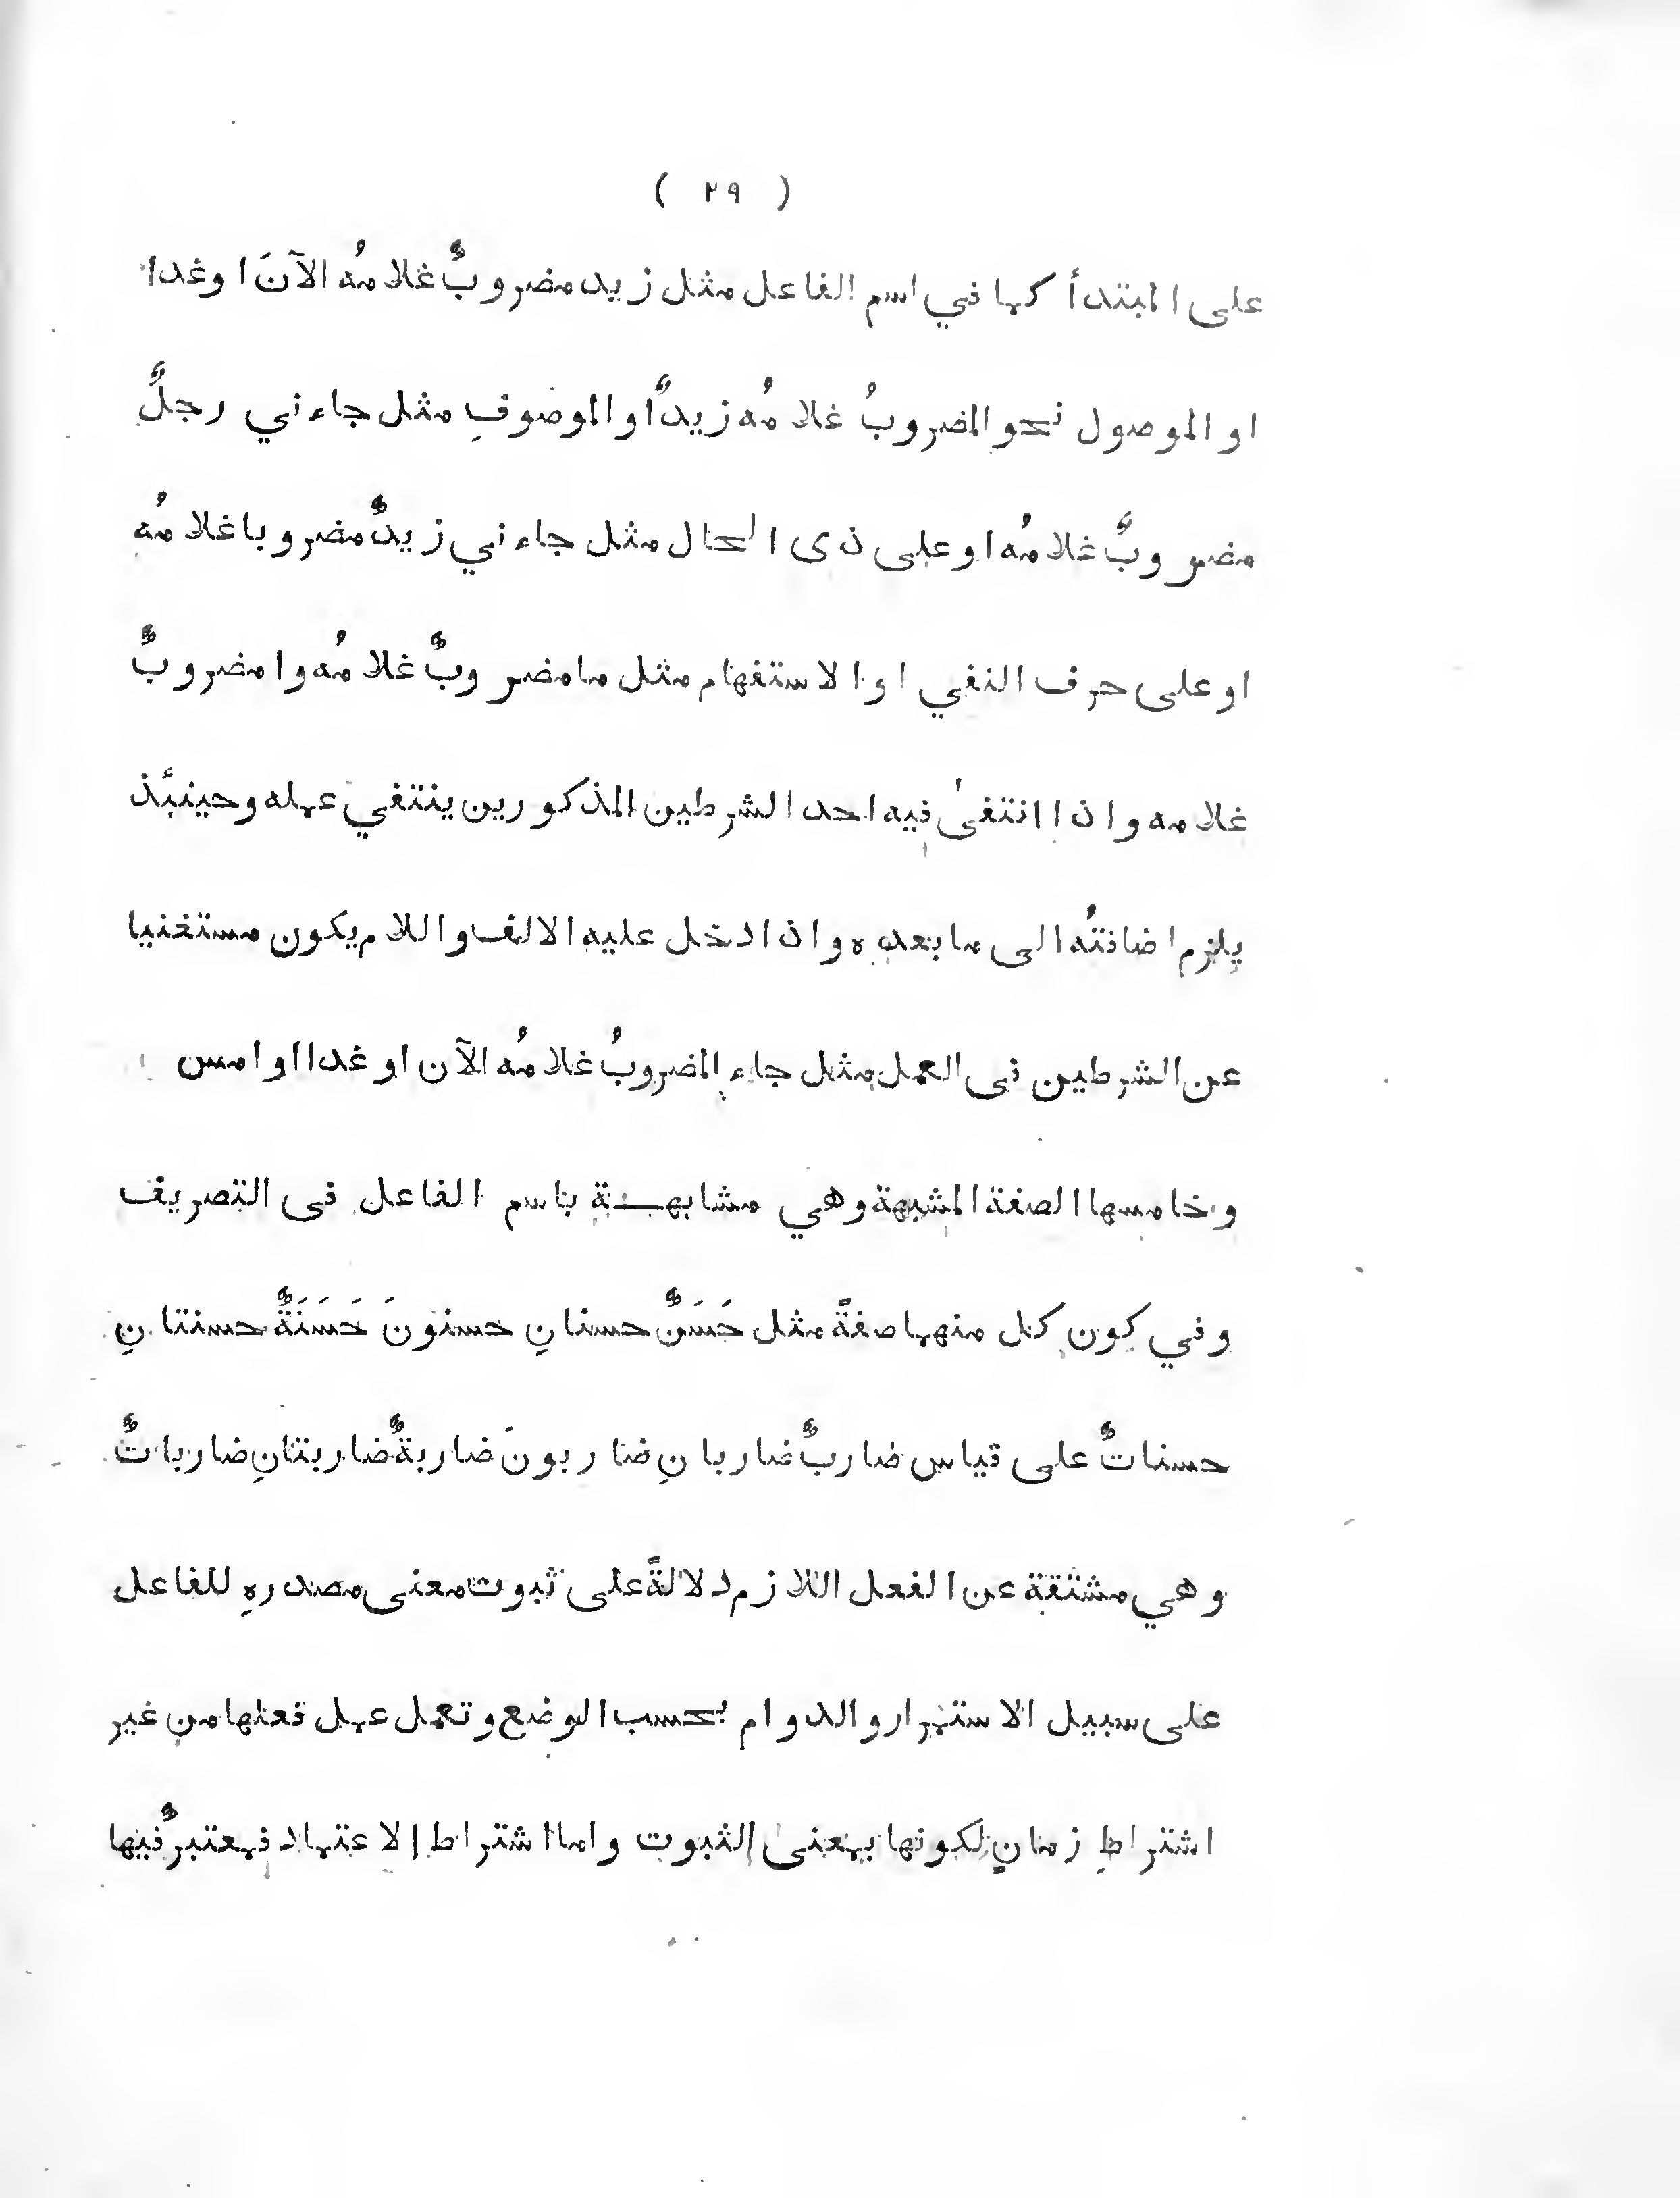 ( ٢٩ )
على المبتدأ كما في اسم الفاعل مثل زيد مضروبٌ غلامُه الآنَ او غدا
او الموصول نحو المضروبُ غلامُه زيدٌ او الموصوفِ مثل جاءني رجلٌ
مضروبٌ غلامُه او على ذى الحال مثل جاءني زيدٌ مضروبا غلامُه
او على حرف النفي او الاستفهام مثل ما مضروبٌ غلامُه و امضروبٌ
غلامه و اذا انتفىٰ فيه احد الشرطين المذكورين ينتفي عمله و حينئذ
يلزم اضافتُه الى ما بعده و اذا دخل عليه الالف و اللام يكون مستغنيا
عن الشرطين فى العمل مثل جاء المضروبُ غلامُه الآن او غدا او امس
و خامسها الصفة المشبهة و هي مشابهة باسم الفاعل فى التصريف
و في كون كل منهما صفةً مثل حَسَنٌ حسنانِ حسنونَ حَسَنَةٌ حسنتانِ
حسناتٌ على قياس ضاربٌ ضاربانِ ضاربونَ ضاربةٌ ضاربتانِ ضارباتٌ
و هي مشتقة عن الفعل اللازم دلالةً على ثبوت معنى مصدرهِ للفاعل
على سبيل الاستمرار و الدوام بحسب الوضع و تعمل عمل فعلها من غير
اشتراطِ زمانٍ لكونها بمعنىٰ الثبوت و اما اشتراط الاعتماد فمعتبرٌ فيها